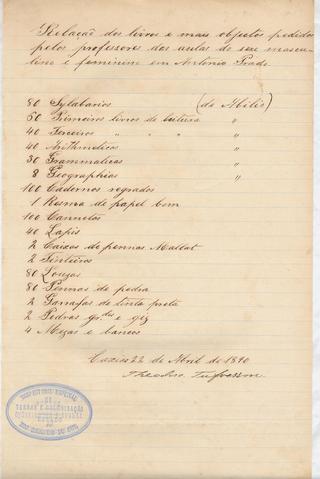 Relação dos livros e mais objectos pedidos
pelos professores das aulas do sexo mascu-
lino e feminino em Antonio Prado
80 Sylabarios (de Abilio)
50 Primeiros livros de leitura "
40 Terceiros " " " "
40 Arithmeticas "
30 Grammaticas "
8 Geographias "
100 Cadernos regrados
1 Resma de papel bom
100 Cannetas
40 Lapis
2 Caixas de pennas Mallat
2 Tinteiros
80 Louzas
80 Pennas de pedra
2 Garrafas de tinta preta
2 Pedras grdes e giz
4 Mezas e bancos
Caxias 22 de Abril de 1890
TERRAS E COLONISAÇÃO